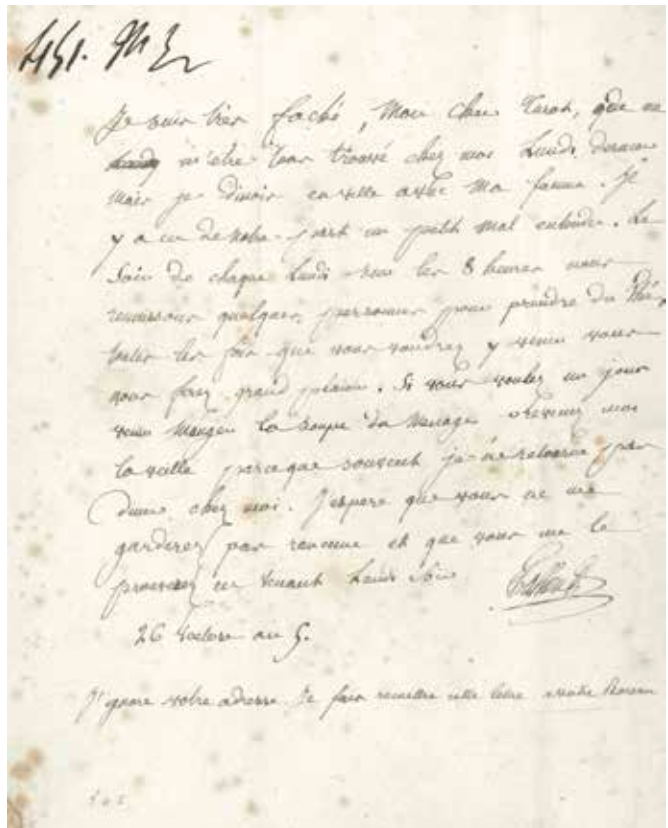 Je suis tres faché, Mon cher que ne
m'etre pas trouvé chez moi Lundi dernier
Mais je dinois en ville avec Ma femme. Il
y a eu de notre part un petit Mal entendu. Le
Soir de chaque Lundi vers les 8 heures nous
reunissons quelques personnes pour prendre du Thé.
toutes les fois que vous voudrez y venir vous
nous ferez grand plaisir. Si vous voulez un jour
venir Manger la soupe du Menage prevenez moi
la veille parceque souvent je ne retourne pas
diner chez moi. J'espere que vous ne me
garderez pas rancune et que vous me le
prouverez en venant Lundi Soir
26 an 5.
J'ignore votre adresse Je fais remettre cette lettre